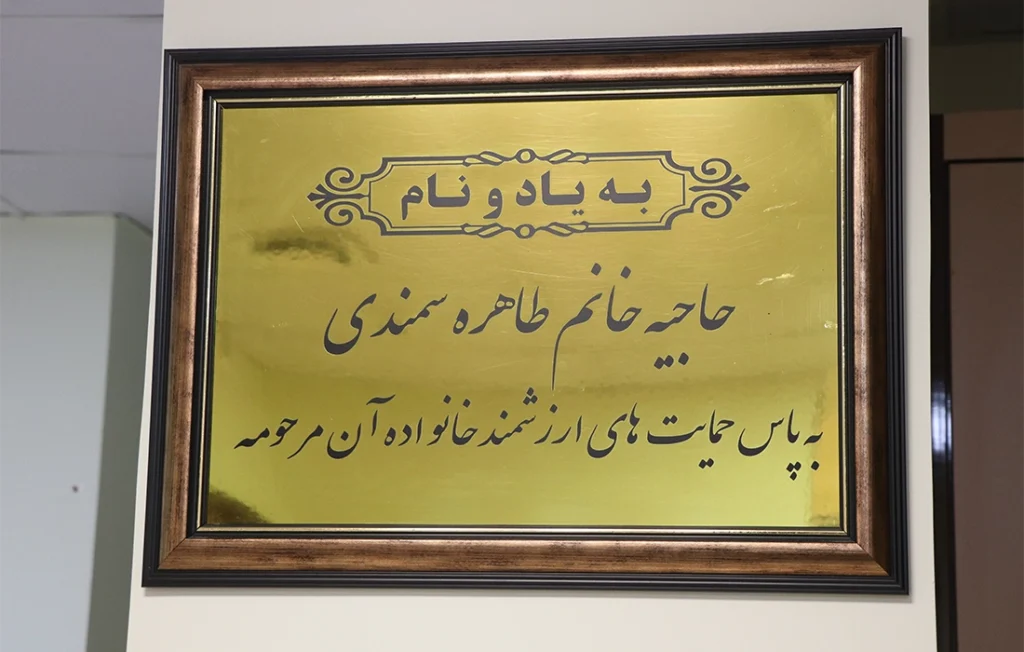 به یاد و نام
حاجیه خانم طاهره سمندی
به پاس حمایت های ارزشمند خانواده آن مرحومه